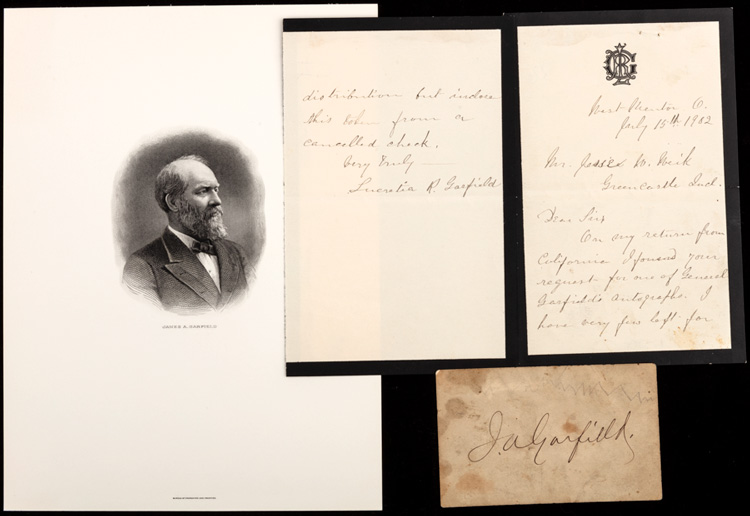 JAMES A. GARFIELD
BUREAU OF ENGRAVING AND PRINTING
distribution but inclose
this token from a
cancelled check.
Very truly
Lucretia R. Garfield
LRG
West Mentor O.
July 15th 1902
Mr. Jesse W. Weik
Greencastle Ind.
Dear Sir,
On my return from
California I found your
request for one of General
Garfield's autographs. I
have very few left for
J. A. Garfield.